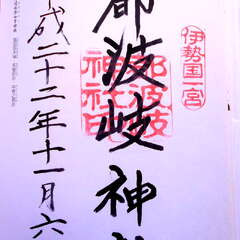 伊勢国一宮
都波岐神社
都波岐神社印
平成二十二年十一月六